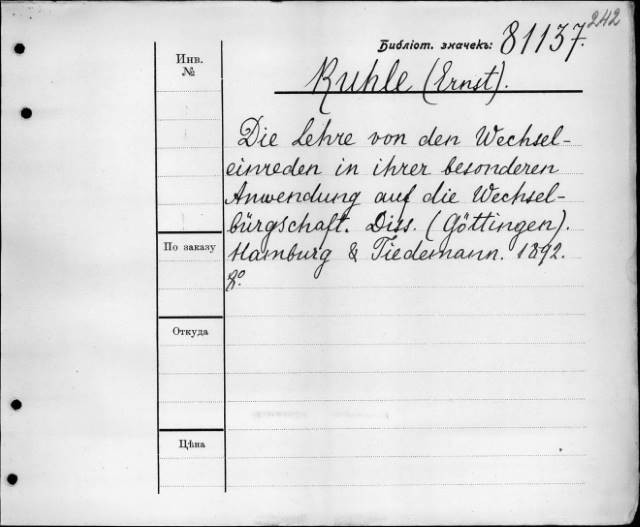 242
Библіот. значекъ: 81137.
Инв.
№
Ruhle (Ernst).
Die Lehre von den Wechsel-
einreden in ihrer besonderen
Anwendung auf die Wechsel-
bürgschaft. Diss. (Göttingen).
По заказу
Hamburg & Tiedemann. 1892.
8º.
Откуда
Цѣна